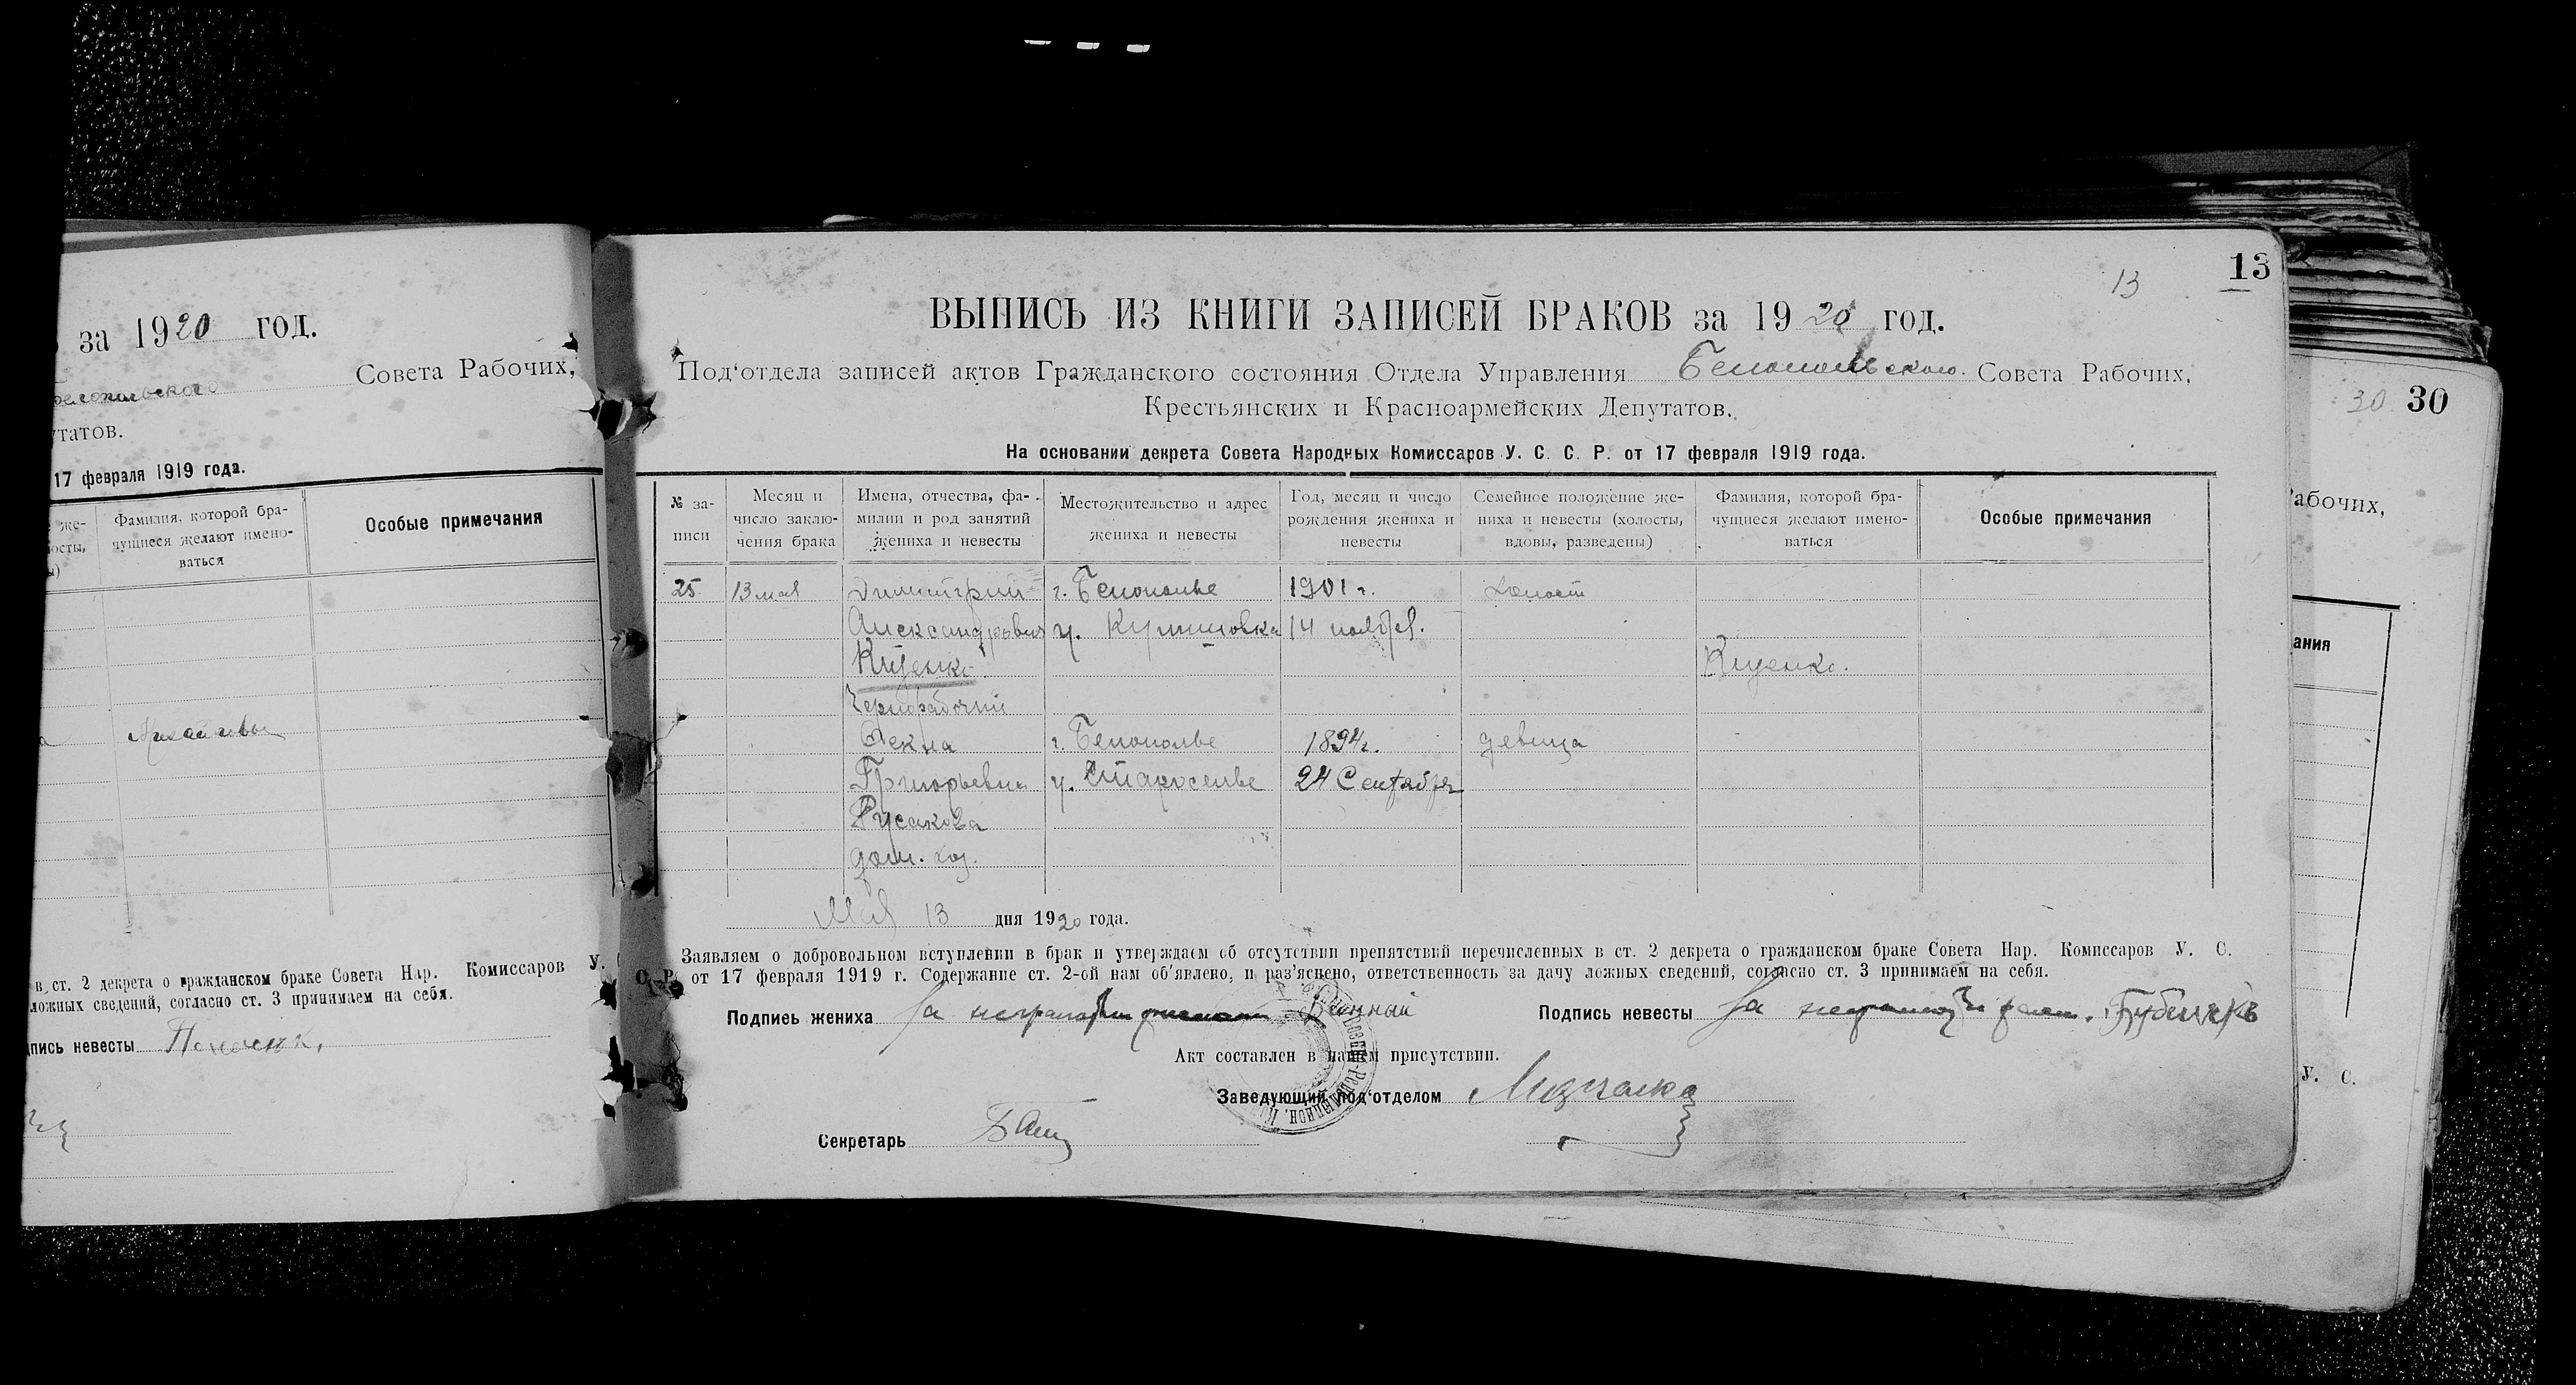 за 1920 год.
Белопольского Совета Рабочих,
утатов.
17 февраля 1919 года.
же-
лосты,
ы)
Фамилия, которой бра-
чущиеся желают имено-
ваться
Особые примечания
в ст. 2 декрета о гражданском браке Совета Нар. Комиссаров У.
ложных сведений, согласно ст. 3 принимаем на себя.
пись невесты
13
13
ВЫПИСЬ ИЗ КНИГИ ЗАПИСЕЙ БРАКОВ за 1920 год.
Под‘отдела записей актов Гражданского состояния Отдела Управления Белопольского. Совета Рабочих,
Крестьянских и Красноармейских Депутатов.
На основании декрета Совета Народных Комиссаров У. С. С. Р. от 17 февраля 1919 года.
№ за-
писи
Месяц и
число заклю-
чения брака
Имена, отчества, фа-
милии и род занятий
жениха и невесты
Местожительство и адрес
жениха и невесты
Год, месяц и число
рождения жениха и
невесты
Семейное положение же-
ниха и невесты (холосты,
вдовы, разведены)
Фамилия, которой бра-
чущиеся желают имено-
ваться
Особые примечания
25 13 мая Димитрий г. Белополье 1901 г. холост
Александрович у. 14 ноября.
Киценко Киценко.
Чернорабочий
Фекла г. Белополье 1894 г. девица
Григорьевна у. Староселье 24 Сентября
Русакова
дом. хоз.
Мая 13 дня 1920 года.
Заявляем о добровольном вступлении в брак и утверждаем об отсутствии препятствий перечисленных в ст. 2 декрета о гражданском браке Совета Нар. Комиссаров У. С.
С. Р. от 17 февраля 1919 г. Содержание ст. 2-ой нам об'явлено, и раз'яснено, ответственность за дачу ложных сведений, согласно ст. 3 принимаем на себя.
Подпись жениха За
Подпись невесты За
Акт составлен в нашем присутствии.
Заведующий под‘отделом
Секретарь
30 30
Рабочих,
ания
У. С.